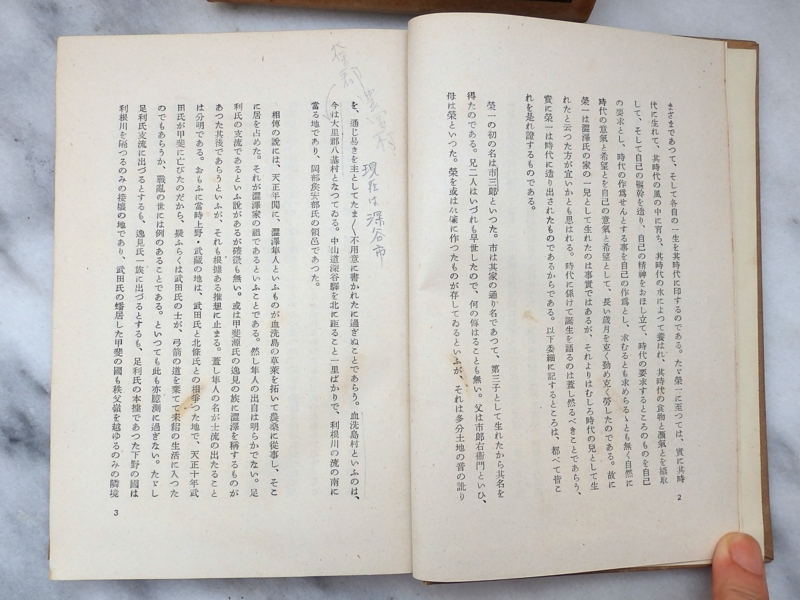 まざまであつて、そして各自の一生を其時代に印するのである。たゞ榮一に至つては、實に其時
代に生れて、其時代の風の中に育ち、其時代の水によつて養はれ、其時代の食物と灝氣とを攝取
して、そして自己の軀幹を造り、自己の精神をおほし立て、時代の要求するところのものを自己
の要求とし、時代の作爲せんとする事を自己の作爲とし、求むるとも求めらるゝとも無く自然に
時代の意氣と希望とを自己の意氣と希望として、長い歳月を克く勤め克く勞したのである。故に
榮一は澁澤氏の家の一兒として生れたのは事實ではあるが、それよりはむしろ時代の兒として生
れたと云つた方が宜いかとも思はれる。時代に係けて誕生を語るのは蓋し然るべきことであらう、
實に榮一は時代に造り出されたものであるからである。以下委細に記するところは、都べて皆こ
れを是れ證するものである。
榮一の初の名は市三郎といつた。市は其家の通り名であつて、第三子として生れたから其名を
得たのである。兄二人はいづれも早世したので、何の傳はることも無い。父は市郎右衞門といひ、
母は榮といつた。榮を或は
に作つたものが存してゐるといふが、それは多分土地の音の訛り
2
を、通じ易きを主としてたま〱不用意に書かれたに過ぎぬことであらう。血洗島村といふのは、
今は大里郡八基村となつてゐる。中山道深谷驛を北に距ること一里ばかりで、利根川の流の南に
當る地であり、岡部侯安部氏の領邑であつた。
現在は深谷市
相傳の說には、天正年間に、澁澤隼人といふものが血洗島の草萊を拓いて農桑に從事し、そこ
に居を占めた。それが澁澤家の祖であるといふことである。然し隼人の出自は明らかでない。足
利氏の支流であるといふ說があるが確徵も無い。或は甲斐源氏の逸見の族に澁澤を稱するものが
あつた其後であらうといふが、それも根據ある推想に止まる。蓋し隼人の名が士流の出たること
は分明である。おもふに當時上野・武藏の地は、武田氏と北條氏との相爭つた地で、天正十年武
田氏が甲斐に亡びたのだから、疑ふらくは武田氏の士が、弓箭の道を棄てて耒耜の生活に入つた
のでもあらうか、戰亂の世には例のあることである。といつても此も亦臆測に過ぎない。たとし
足利氏支流に出づるとするも、逸見氏一族に出づるとするも、足利氏の本據であつた下野の國は
利根川を隔つるのみの接壤の地であり、武田氏の蟠居した甲斐の國も秩父嶺を越ゆるのみの隣境
3